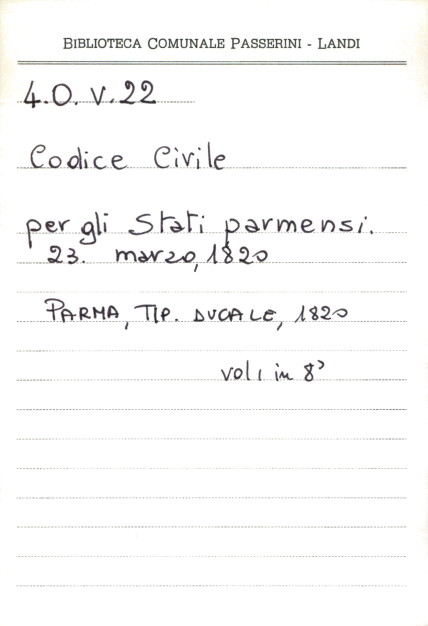 BIBLIOTECA COMUNALE PASSERINI - LANDI
4.O.V.22
Codice Civile
per gli Stati parmensi.
23. marzo, 1820
PARMA, TIP. DUCALE, 1820
vol 1 in 8°